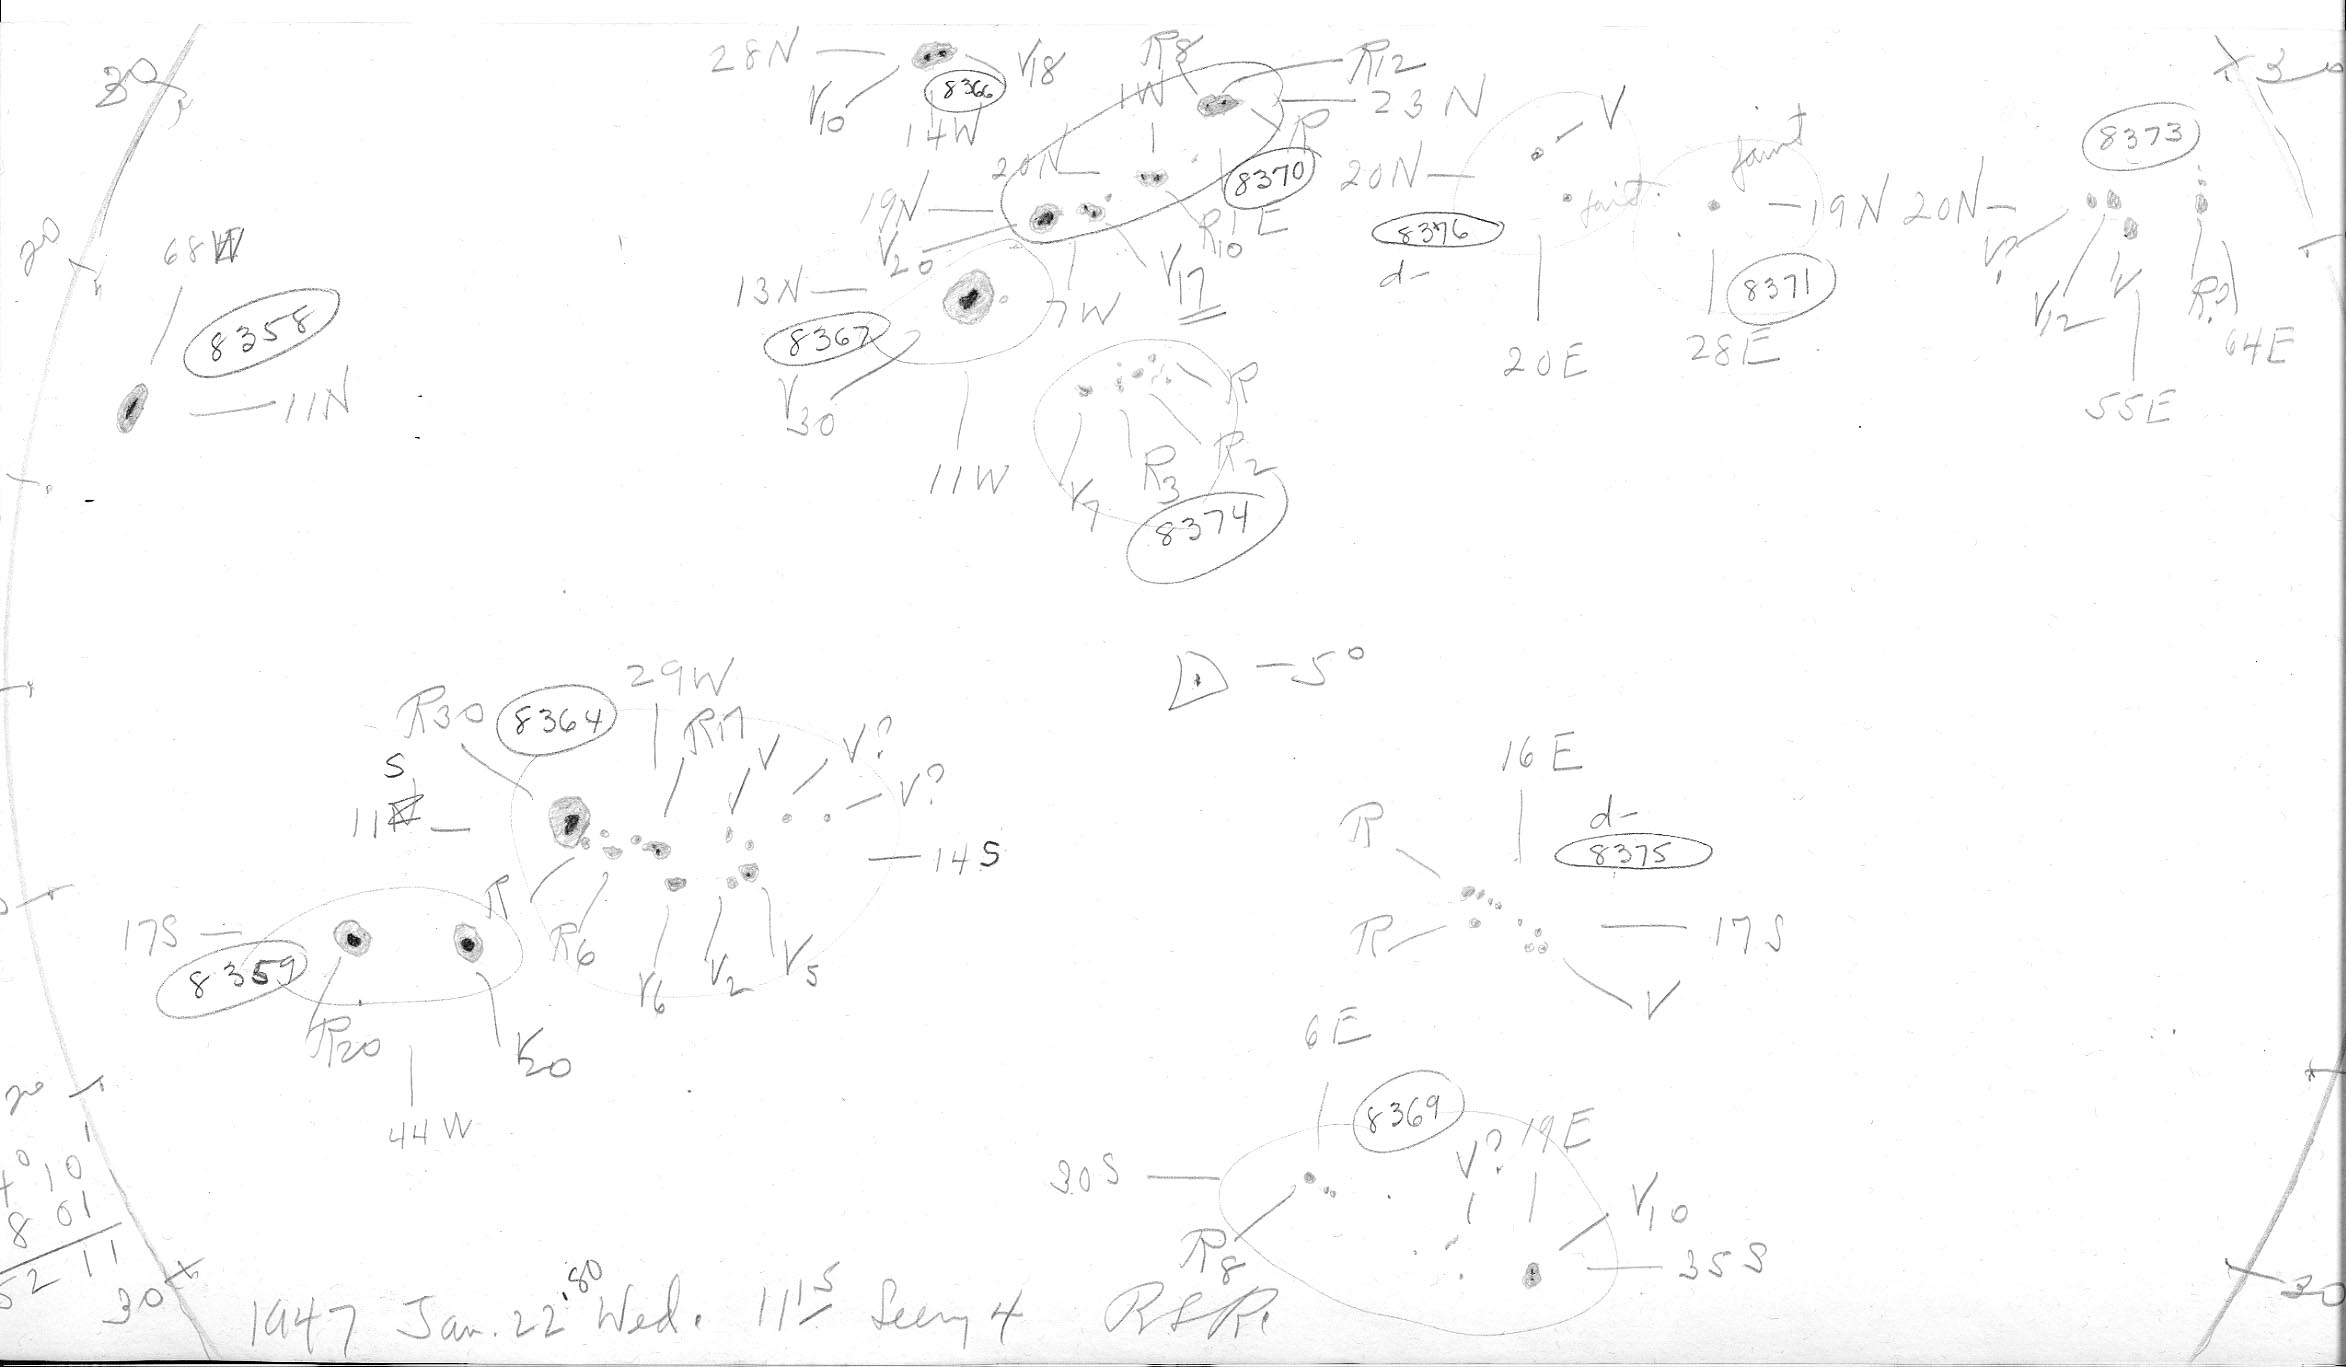 30
28N
V10
8366
14W
V18
R8
1W
R12
23N
R
8370
20N
19N
V20
R10
1E
V17
7W
13N
8367
V30
11W
20
68W
8358
11N
R
R2
R3
V7
8374
20N
V
faint
8376
d-
20E
faint
19N
8371
28E
20N
8373
V?
V12
V
R?
64E
55E
30
D -5°
29W
R30
8364
R17
V
V?
V?
S
11
14S
R
R6
V6
V2
V5
17S
8359
R20
V20
44W
16E
R
d-
8375
R
17S
V
6E
8369
V?
19E
30S
R8
V10
35S
20
10
8 01
52 11
30
30
1947 Jan. 22.80 Wed. 11 15 Seeing 4